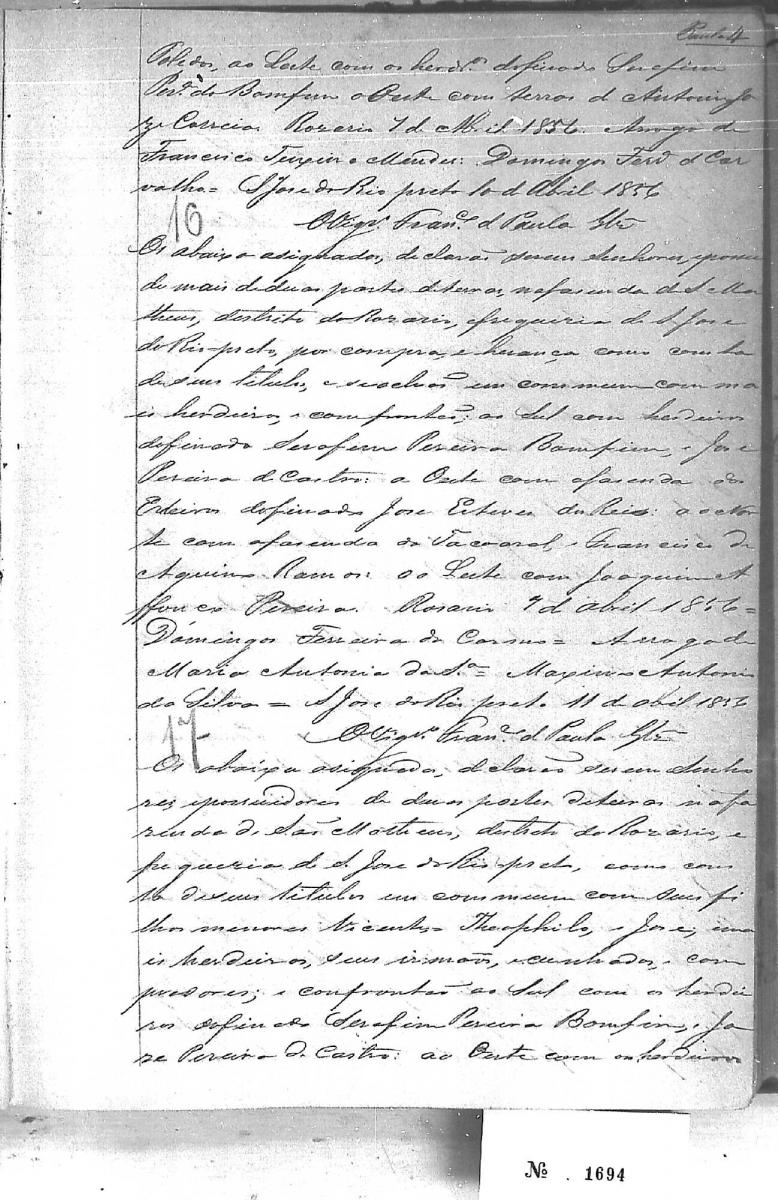 Paula 4
Toledos, ao Leste com os herdr.os dofinado Serafim
Per.a do Bomfim o Oeste com terras d Antonio Jo
ze Correia. Rozario 7 d Abril 1856. Arrogo de
Francisco Teixeira Mendes: Domingos Ferr.a d Car
valho = S Jose do Rio preto 10 d Abril 1856
16
O Vigr.o Fran.co d Paula
Os abaixo asignados, declarão serem Senhores, epossui
de mais de duas partes deterras, nafasenda de S Ma
theus, destrito do Rozario, efreguezia de S Jose
do Rio-preto, por compra, e herança como consta
deseus titulos, e seachão em commum com ma
is herdeiros, e comfrontão; ao Sul com herdeiros
dofinado Serafim Pereira Bomfim, e Jose
Pereira d Castro: a Oeste com afasenda dos
Erdeiros dofinado Jose Esteves dos Reis: ao Nor
te com afasenda do Tacoaral, e Francisco de
Aquino Ramos: ao Leste com Joaquim A
ffonço Pereira. Rosario 7 d abril 1856 =
Domingos Ferreira do Carmo = Arrogo de
Maria Antonia da S.a = Maximo Antonio
da Silva = S Jose do Rio preto 11 de abril 1856
17
O Vigr.o Fran.co d Paula
Os abaixo asignados, declarão serem Senho
res, epossuidores de duas partes deterras nafa
zenda de São Matheus, destrito do Rozario, e
freguezia de S. Jose do Rio-preto, como cons
ta deseus titulos em commum com seus fi
lhos menores Vicente = Theophilo, e Jose, e ma
is herdeiros, seus irmãos, ecunhados, e com
pradores; e confrontão ao Sul com os herdei
ros dofinado Serafim Pereira Bomfim, e Jo
ze Pereira de Castro: ao Oeste com os herdeiros
№ . 1694